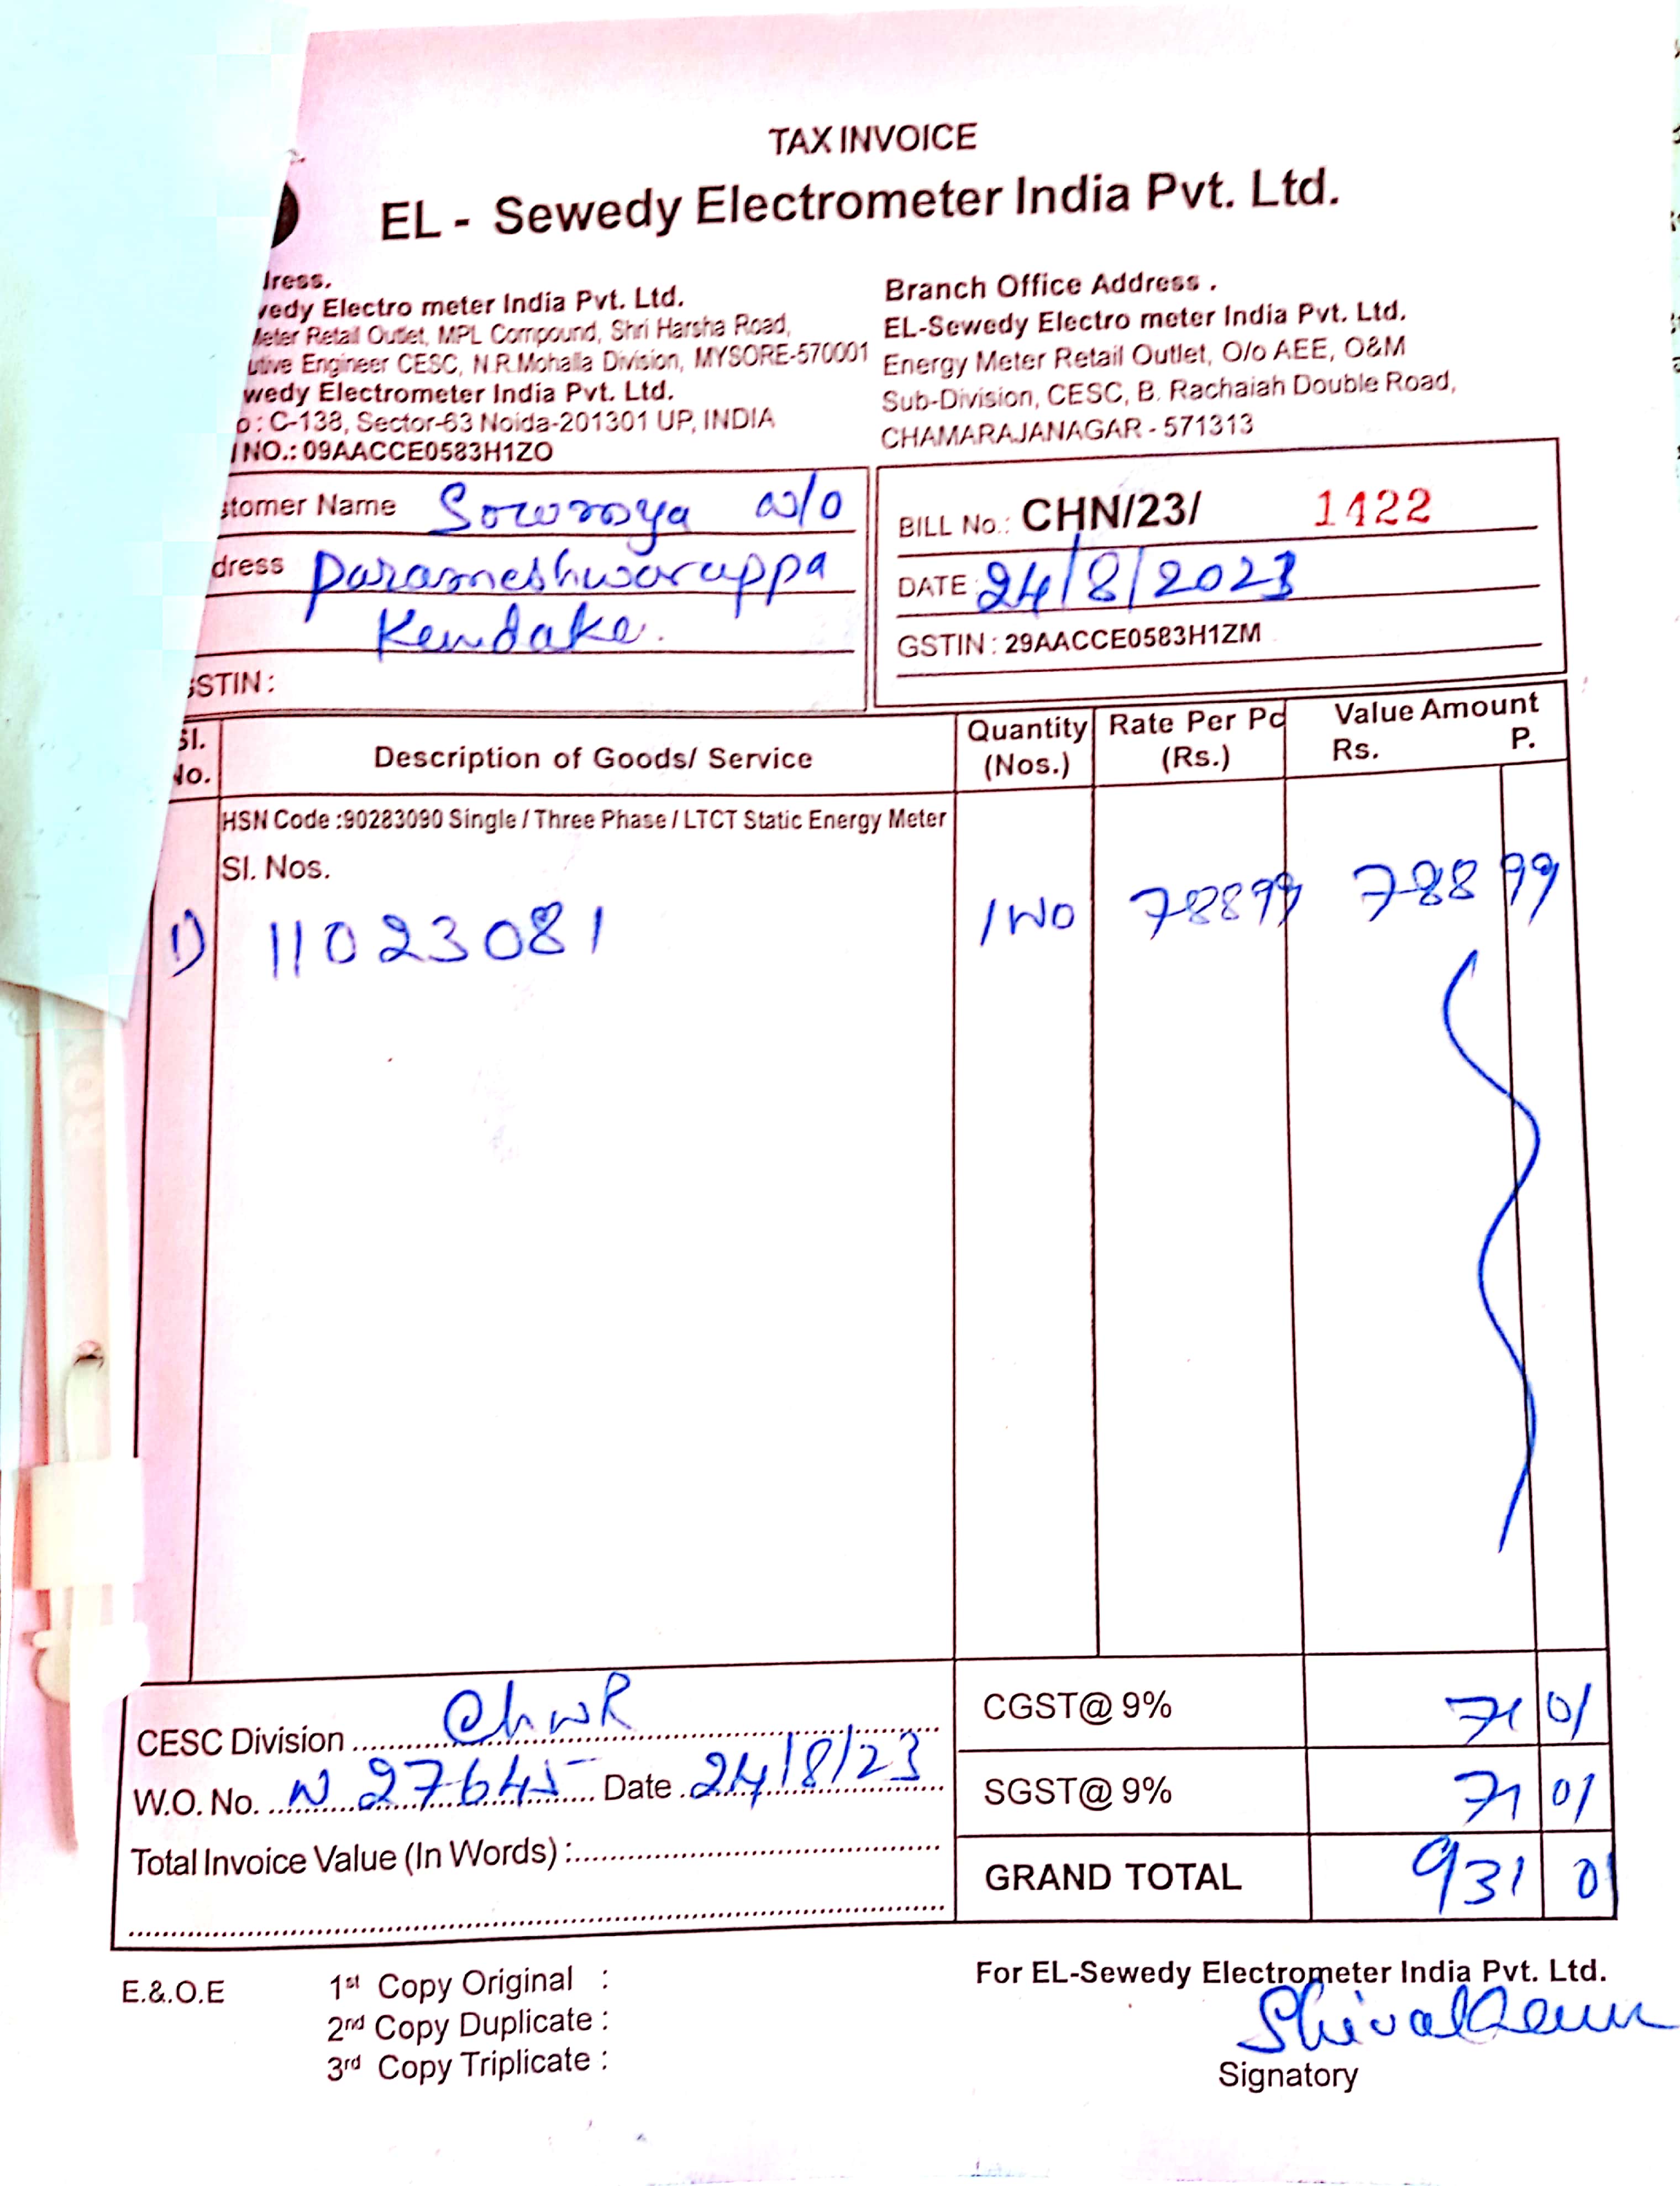 TAX INVOICE
EL - Sewedy Electrometer India Pvt. Ltd.
dress.
wedy Electro meter India Pvt. Ltd.
Meter Retail Outlet, MPL Compound, Shri Harsha Road,
utive Engineer CESC, N.R.Mohalla Division, MYSORE-570001
wedy Electrometer India Pvt. Ltd.
o : C-138, Sector-63 Noida-201301 UP, INDIA
NO.: 09AACCE0583H1ZO
Branch Office Address .
EL-Sewedy Electro meter India Pvt. Ltd.
Energy Meter Retail Outlet, O/o AEE, O&M
Sub-Division, CESC, B. Rachaiah Double Road,
CHAMARAJANAGAR - 571313
stomer Name w/o
dress Parameshwarappa
Kendake.
GSTIN :
BILL No.: CHN/23/ 1422
DATE : 24/8/2023
GSTIN : 29AACCE0583H1ZM
Sl. No. Description of Goods/ Service Quantity (Nos.) Rate Per Pc (Rs.) Value Amount Rs. P.
HSN Code :90283090 Single / Three Phase / LTCT Static Energy Meter
Sl. Nos.
1) 11023081 1 NO 78899 788 99
CESC Division ChNR
W.O. No. N 27645 Date 24/8/23
Total Invoice Value (In Words) :
CGST@ 9% 71 01
SGST@ 9% 71 01
GRAND TOTAL 931 01
E.&.O.E
1st Copy Original :
2nd Copy Duplicate :
3rd Copy Triplicate :
For EL-Sewedy Electrometer India Pvt. Ltd.
Signatory